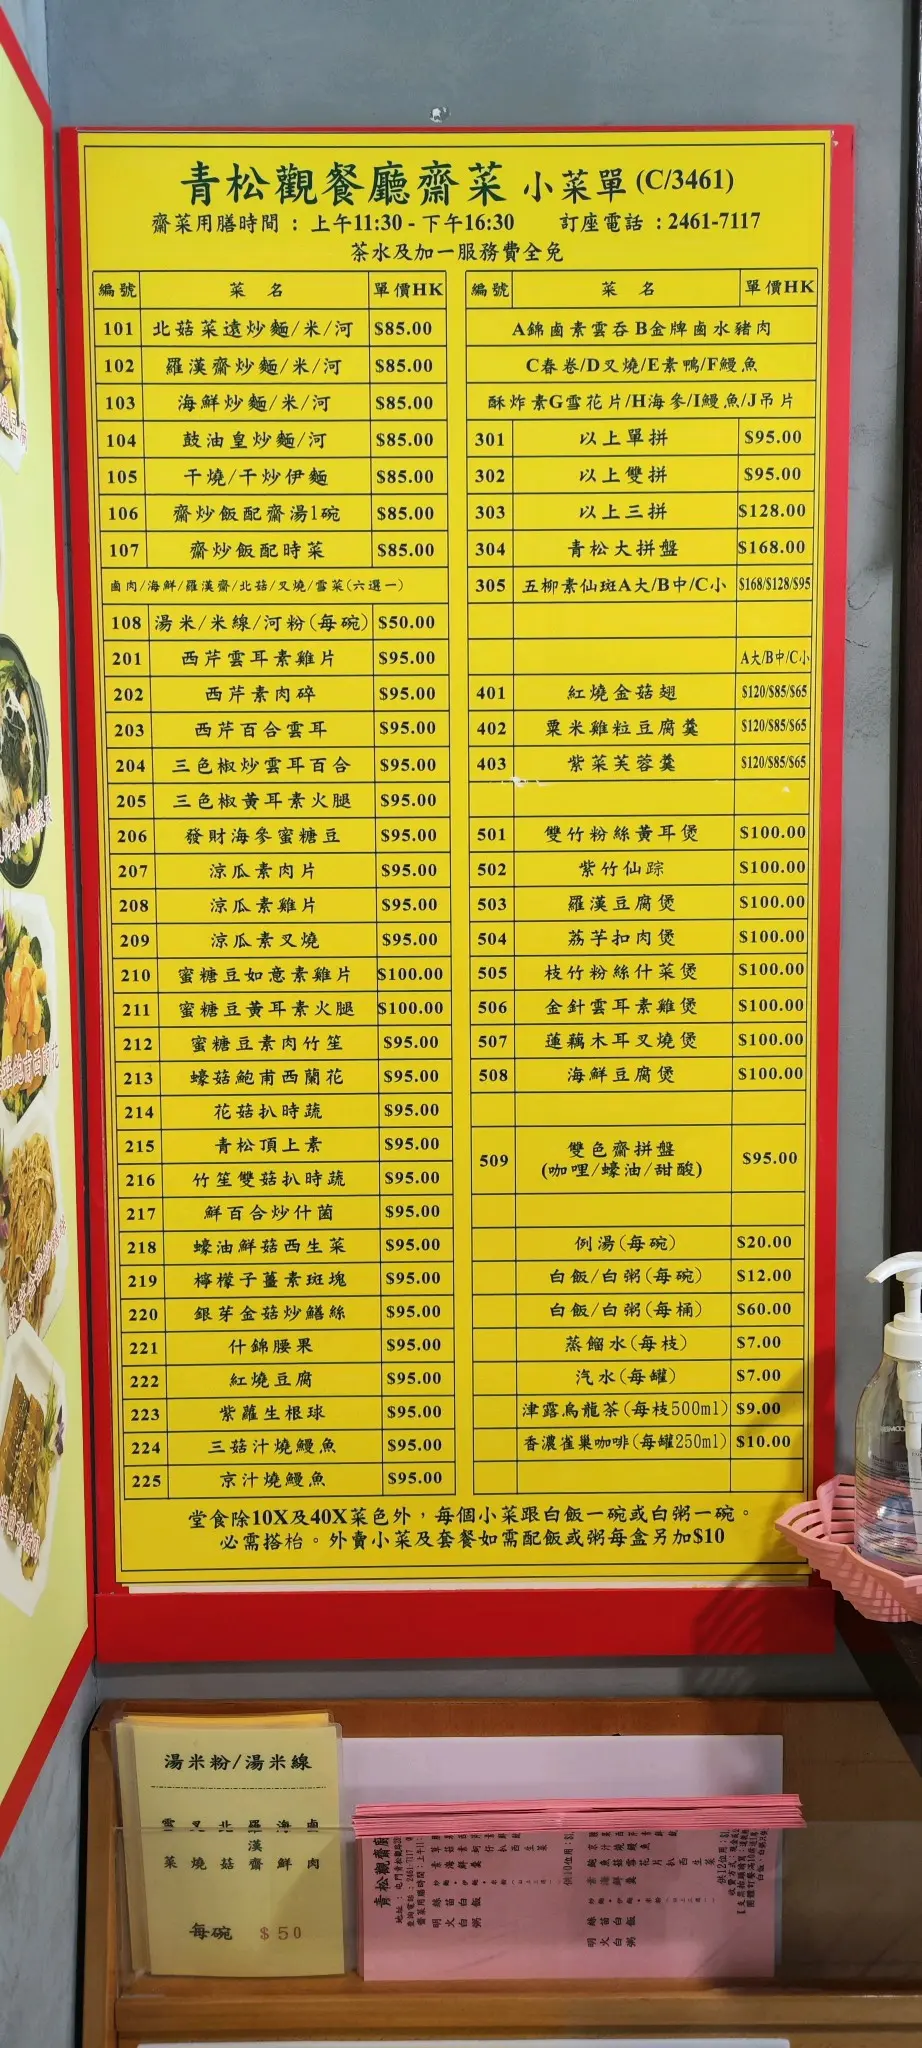 青松觀餐廳齋菜 小菜單 (C/3461)
齋菜用膳時間 : 上午11:30 - 下午16:30 訂座電話 : 2461-7117
茶水及加一服務費全免
編號 菜 名 單價HK
101 北菇菜遠炒麵/米/河 $85.00
102 羅漢齋炒麵/米/河 $85.00
103 海鮮炒麵/米/河 $85.00
104 鼓油皇炒麵/河 $85.00
105 干燒/干炒伊麵 $85.00
106 齋炒飯配齋湯1碗 $85.00
107 齋炒飯配時菜 $85.00
鹵肉/海鮮/羅漢齋/北菇/叉燒/雪菜(六選一)
108 湯米/米線/河粉(每碗) $50.00
201 西芹雲耳素雞片 $95.00
202 西芹素肉碎 $95.00
203 西芹百合雲耳 $95.00
204 三色椒炒雲耳百合 $95.00
205 三色椒黃耳素火腿 $95.00
206 發財海參蜜糖豆 $95.00
207 涼瓜素肉片 $95.00
208 涼瓜素雞片 $95.00
209 涼瓜素叉燒 $95.00
210 蜜糖豆如意素雞片 $100.00
211 蜜糖豆黃耳素火腿 $100.00
212 蜜糖豆素肉竹笙 $95.00
213 蠔菇鮑甫西蘭花 $95.00
214 花菇扒時蔬 $95.00
215 青松頂上素 $95.00
216 竹笙雙菇扒時蔬 $95.00
217 鮮百合炒什菌 $95.00
218 蠔油鮮菇西生菜 $95.00
219 檸檬子薑素斑塊 $95.00
220 銀芽金菇炒鱔絲 $95.00
221 什錦腰果 $95.00
222 紅燒豆腐 $95.00
223 紫蘿生根球 $95.00
224 三菇汁燒鰻魚 $95.00
225 京汁燒鰻魚 $95.00
編號 菜 名 單價HK
A錦鹵素雲吞 B金牌鹵水豬肉
C春卷/D叉燒/E素鴨/F鰻魚
酥炸素G雪花片/H海參/I鰻魚/J吊片
301 以上單拼 $95.00
302 以上雙拼 $95.00
303 以上三拼 $128.00
304 青松大拼盤 $168.00
305 五柳素仙斑A大/B中/C小 $168/$128/$95
A大/B中/C小
401 紅燒金菇翅 $120/$85/$65
402 粟米雞粒豆腐羹 $120/$85/$65
403 紫菜芙蓉羹 $120/$85/$65
501 雙竹粉絲黃耳煲 $100.00
502 紫竹仙踪 $100.00
503 羅漢豆腐煲 $100.00
504 荔芋扣肉煲 $100.00
505 枝竹粉絲什菜煲 $100.00
506 金針雲耳素雞煲 $100.00
507 蓮藕木耳叉燒煲 $100.00
508 海鮮豆腐煲 $100.00
509 雙色齋拼盤 $95.00
(咖哩/蠔油/甜酸)
例湯(每碗) $20.00
白飯/白粥(每碗) $12.00
白飯/白粥(每桶) $60.00
蒸餾水(每枝) $7.00
汽水(每罐) $7.00
津露烏龍茶(每枝500ml) $9.00
香濃雀巢咖啡(每罐250ml) $10.00
堂食除10X及40X菜色外，每個小菜跟白飯一碗或白粥一碗。
必需搭枱。外賣小菜及套餐如需配飯或粥每盒另加$10
湯米粉/湯米線
每碗 $50